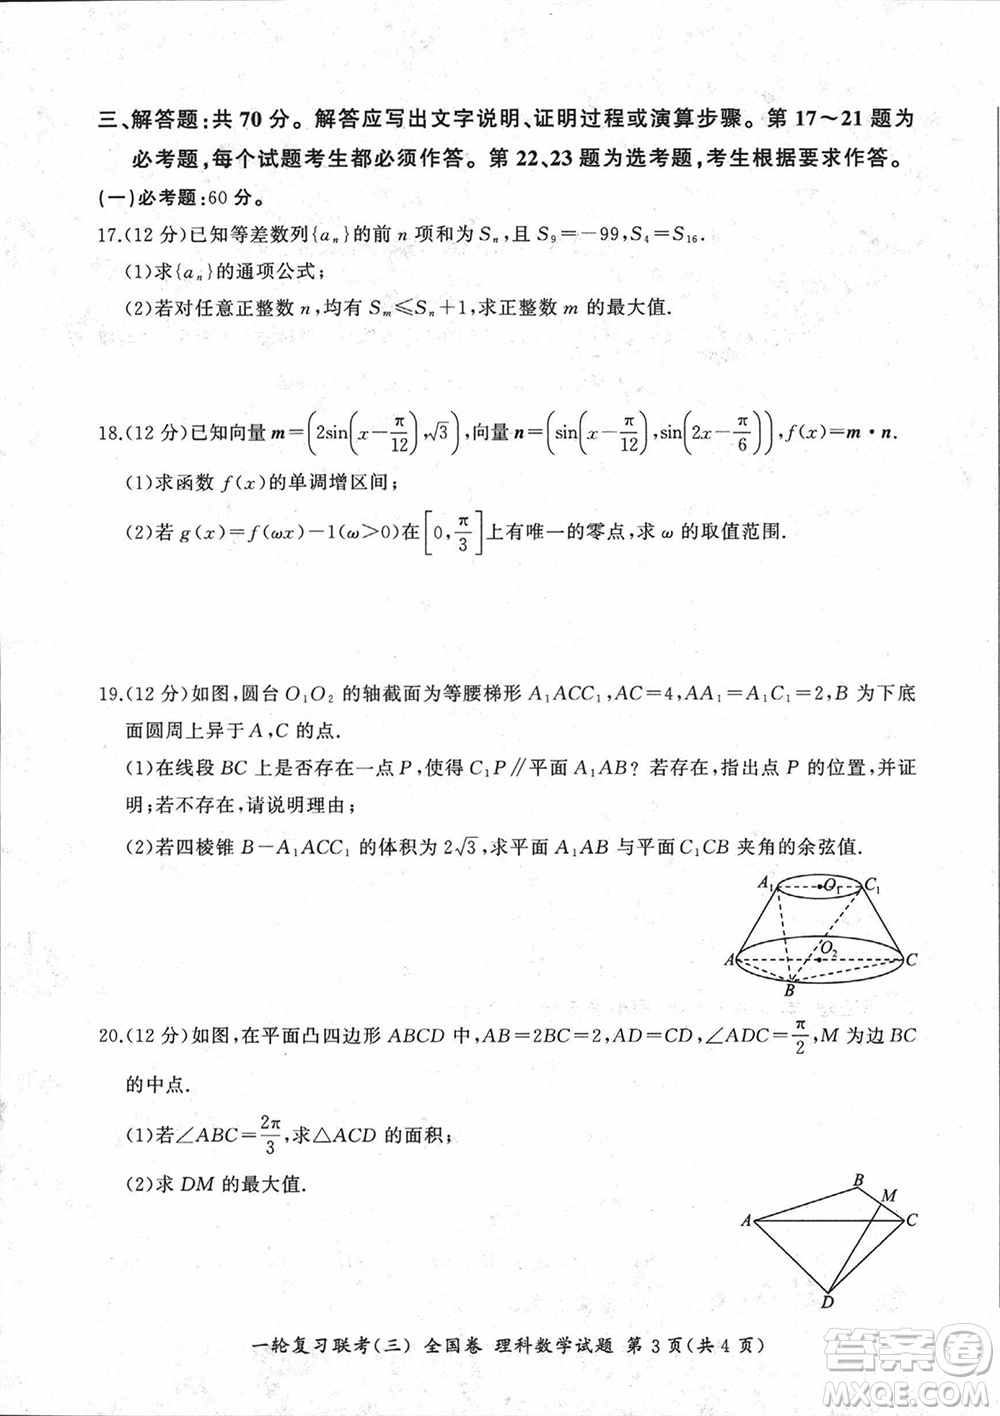 三、解答题:共70分。解答应写出文字说明、证明过程或演算步骤。第17～21题为
必考题,每个试题考生都必须作答。第22、23题为选考题,考生根据要求作答。
(一)必考题:60分。
17.(12分)已知等差数列{aₙ}的前n项和为Sₙ,且S₉=−99,S₄=S₁₆.
(1)求{aₙ}的通项公式;
(2)若对任意正整数n,均有Sₘ⩽Sₙ+1,求正整数m的最大值.
18.(12分)已知向量m=(2sin(x−π/12),√3),向量n=(sin(x−π/12),sin(2x−π/6)),f(x)=m·n.
(1)求函数f(x)的单调增区间;
(2)若g(x)=f(ωx)−1(ω>0)在[0,π/3]上有唯一的零点,求ω的取值范围.
19.(12分)如图,圆台O₁O₂的轴截面为等腰梯形A₁ACC₁,AC=4,AA₁=A₁C₁=2,B为下底
面圆周上异于A,C的点.
(1)在线段BC上是否存在一点P,使得C₁P∥平面A₁AB?若存在,指出点P的位置,并证
明;若不存在,请说明理由;
(2)若四棱锥B−A₁ACC₁的体积为2√3,求平面A₁AB与平面C₁CB夹角的余弦值.
A₁ O₁ C₁
A O₂ C
B
20.(12分)如图,在平面凸四边形ABCD中,AB=2BC=2,AD=CD,∠ADC=π/2,M为边BC
的中点.
(1)若∠ABC=2π/3,求△ACD的面积;
(2)求DM的最大值.
B
M
A C
D
一轮复习联考(三) 全国卷 理科数学试题 第3页(共4页)
答案圈
MXQE.COM